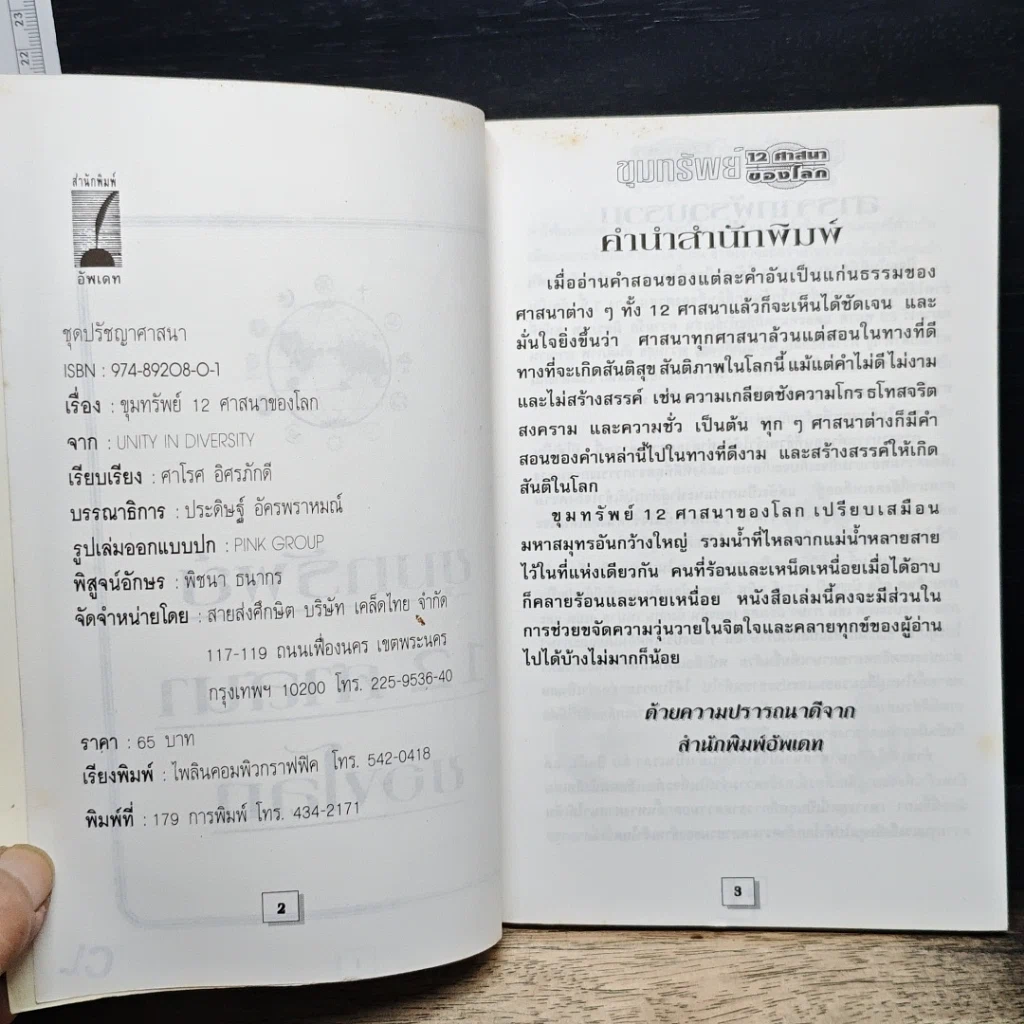 23
22
สำนักพิมพ์
อัพเดท
ชุดปรัชญาศาสนา
ISBN : 974-89208-0-1
เรื่อง : ขุมทรัพย์ 12 ศาสนาของโลก
จาก : UNITY IN DIVERSITY
เรียบเรียง : ศาโรศ อิศรภักดี
บรรณาธิการ : ประดิษฐ์ อัครพราหมณ์
รูปเล่มออกแบบปก : PINK GROUP
พิสูจน์อักษร : พิชนา ธนากร
จัดจำหน่ายโดย : สายส่งศึกษิต บริษัท เคล็ดไทย จำกัด
117-119 ถนนเฟื่องนคร เขตพระนคร
กรุงเทพฯ 10200 โทร. 225-9536-40
ราคา : 65 บาท
เรียงพิมพ์ : ไพลินคอมพิวกราฟฟิค โทร. 542-0418
พิมพ์ที่ : 179 การพิมพ์ โทร. 434-2171
2
ขุมทรัพย์ 12 ศาสนา
ของโลก
คำนำสำนักพิมพ์
เมื่ออ่านคำสอนของแต่ละคำอันเป็นแก่นธรรมของ
ศาสนาต่าง ๆ ทั้ง 12 ศาสนาแล้วก็จะเห็นได้ชัดเจน และ
มั่นใจยิ่งขึ้นว่า ศาสนาทุกศาสนาล้วนแต่สอนในทางที่ดี
ทางที่จะเกิดสันติสุข สันติภาพในโลกนี้ แม้แต่คำไม่ดี ไม่งาม
และไม่สร้างสรรค์ เช่น ความเกลียดชังความโกร ธโทสจริต
สงคราม และความชั่ว เป็นต้น ทุก ๆ ศาสนาต่างก็มีคำ
สอนของคำเหล่านี้ไปในทางที่ดีงาม และสร้างสรรค์ให้เกิด
สันติในโลก
ขุมทรัพย์ 12 ศาสนาของโลก เปรียบเสมือน
มหาสมุทรอันกว้างใหญ่ รวมน้ำที่ไหลจากแม่น้ำหลายสาย
ไว้ในที่แห่งเดียวกัน คนที่ร้อนและเหน็ดเหนื่อยเมื่อได้อาบ
ก็คลายร้อนและหายเหนื่อย หนังสือเล่มนี้คงจะมีส่วนใน
การช่วยขจัดความวุ่นวายในจิตใจและคลายทุกข์ของผู้อ่าน
ไปได้บ้างไม่มากก็น้อย
ด้วยความปรารถนาดีจาก
สำนักพิมพ์อัพเดท
3